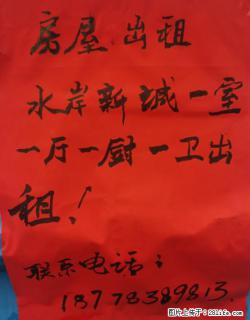 房屋出租
水岸新城一室
一厅一厨一卫出
租！
联系电话：
18778389813.
图片上传于：28life.com